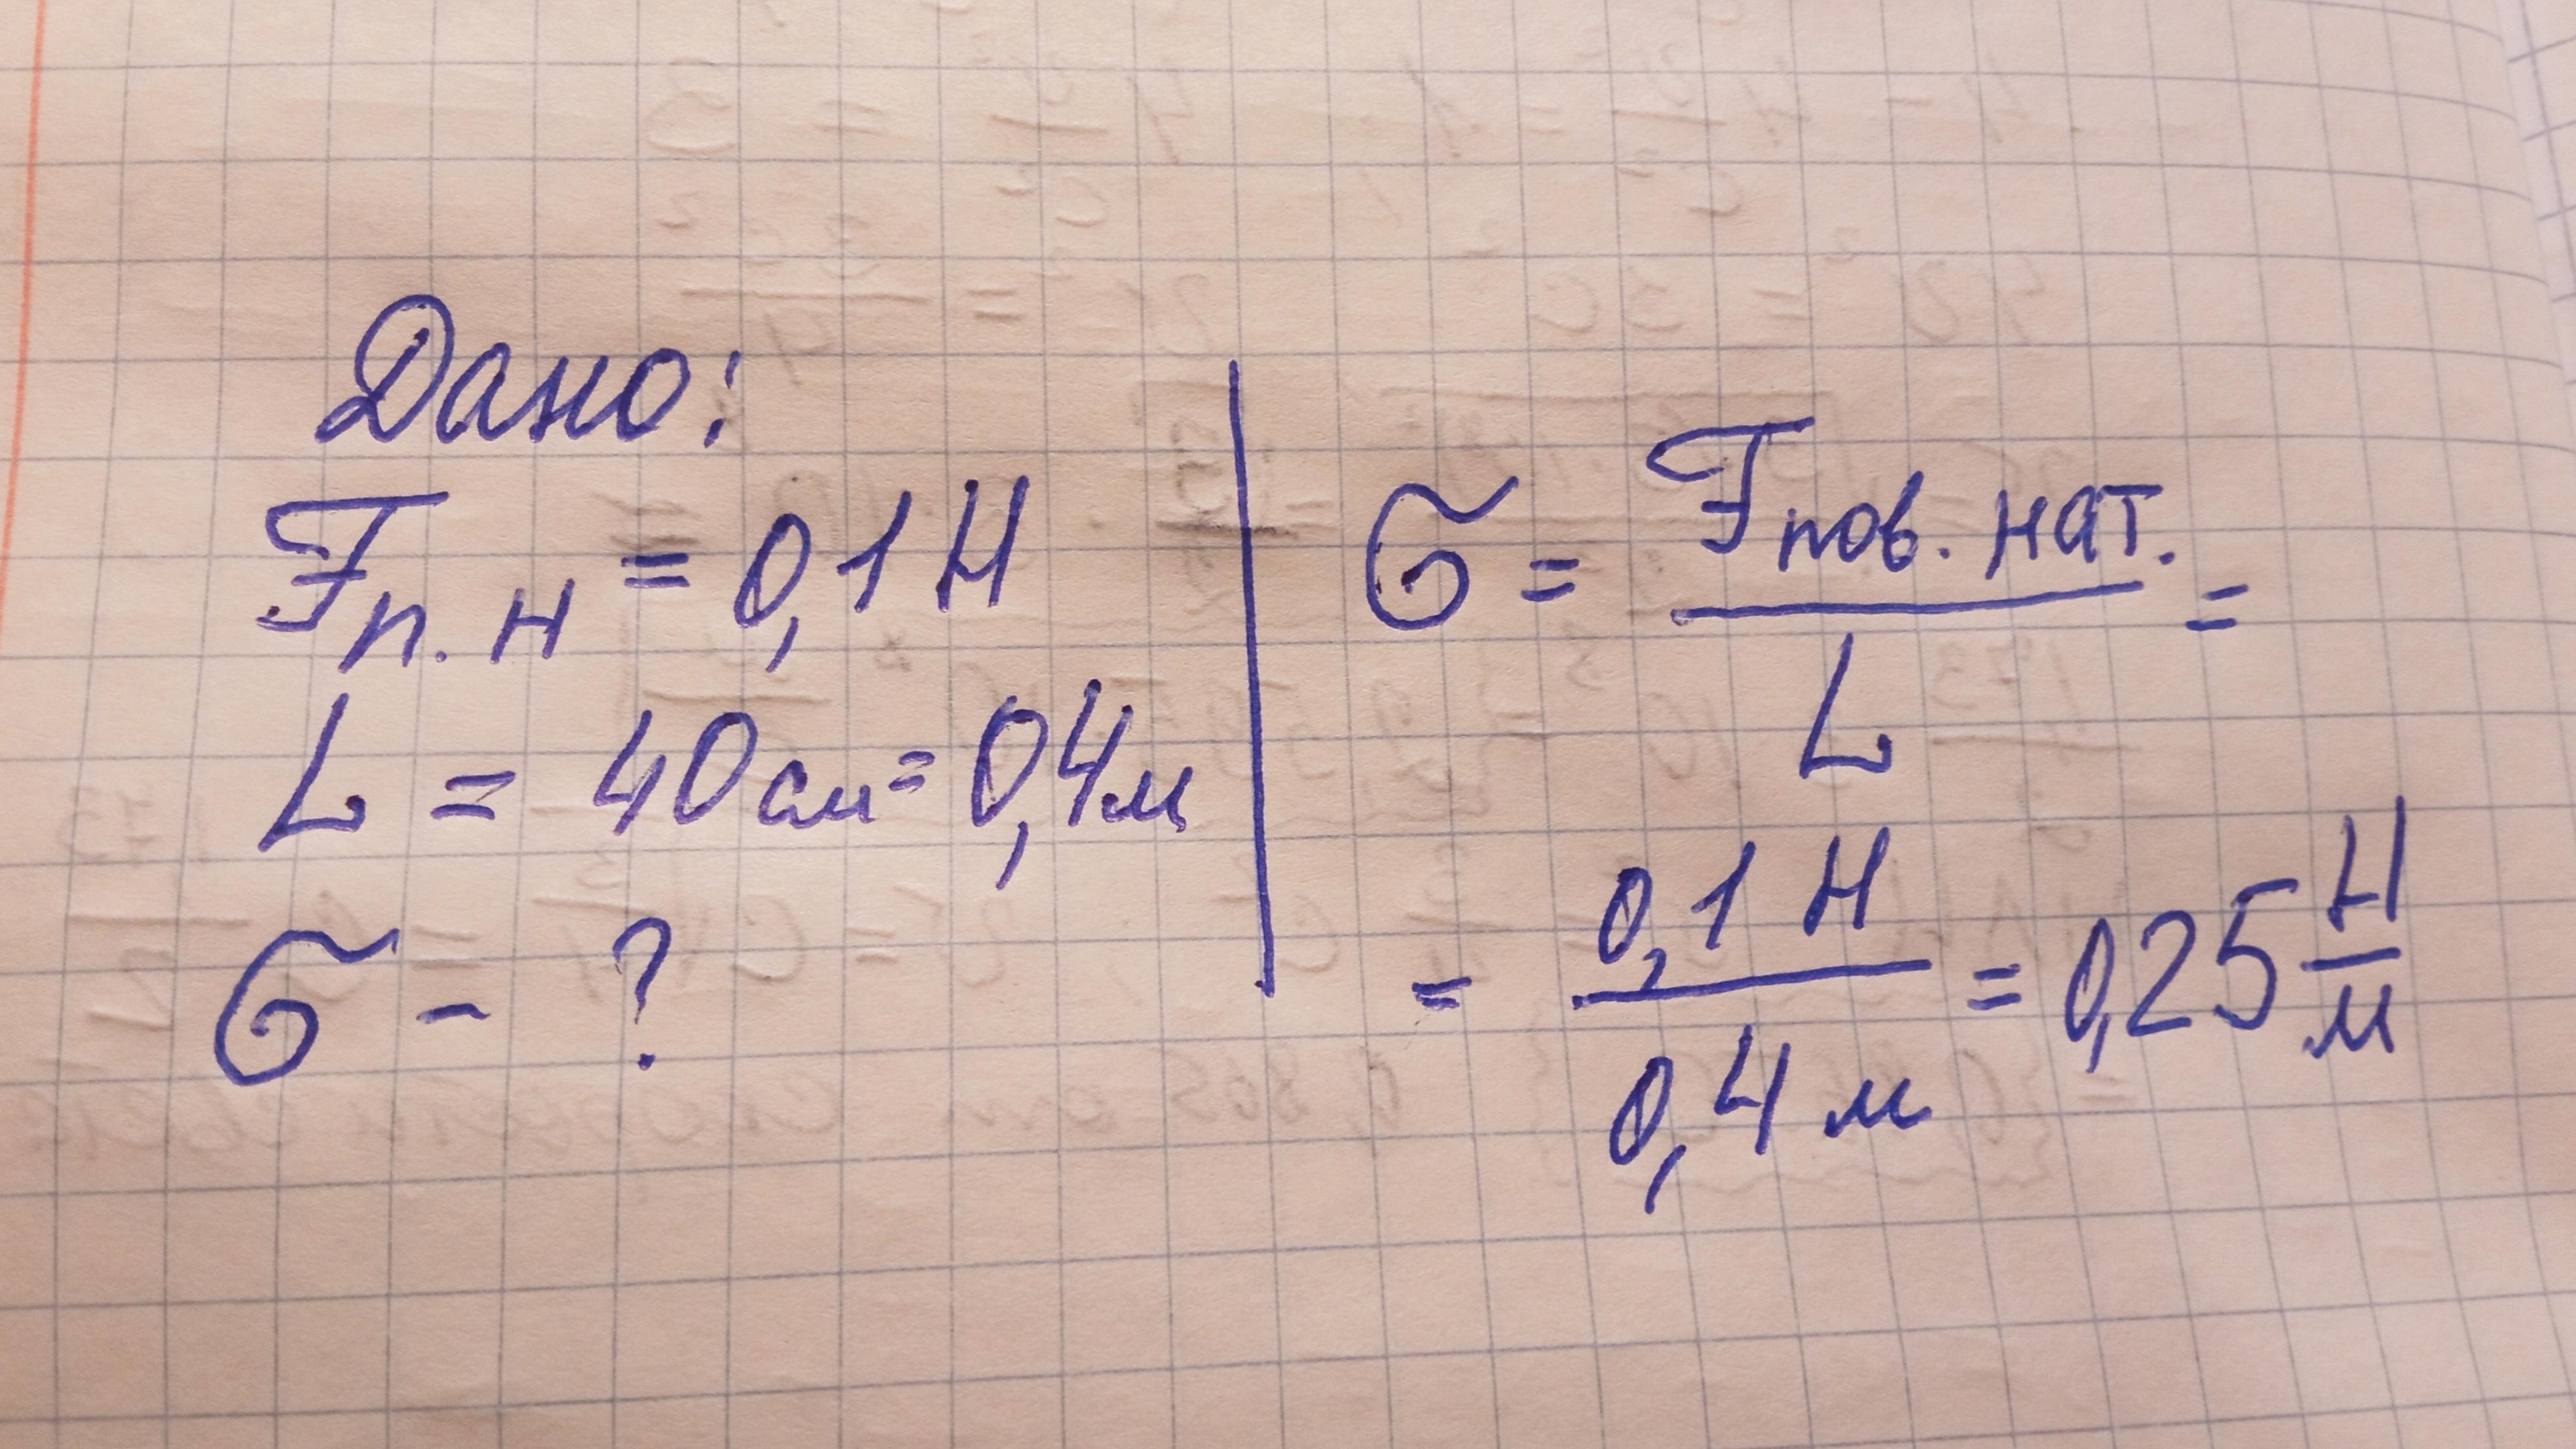 Дано:
Fп.н = 0,1 Н
L = 40 см = 0,4 м
σ - ?
σ = Fпов. нат. / L =
= 0,1 Н / 0,4 м = 0,25 Н/м